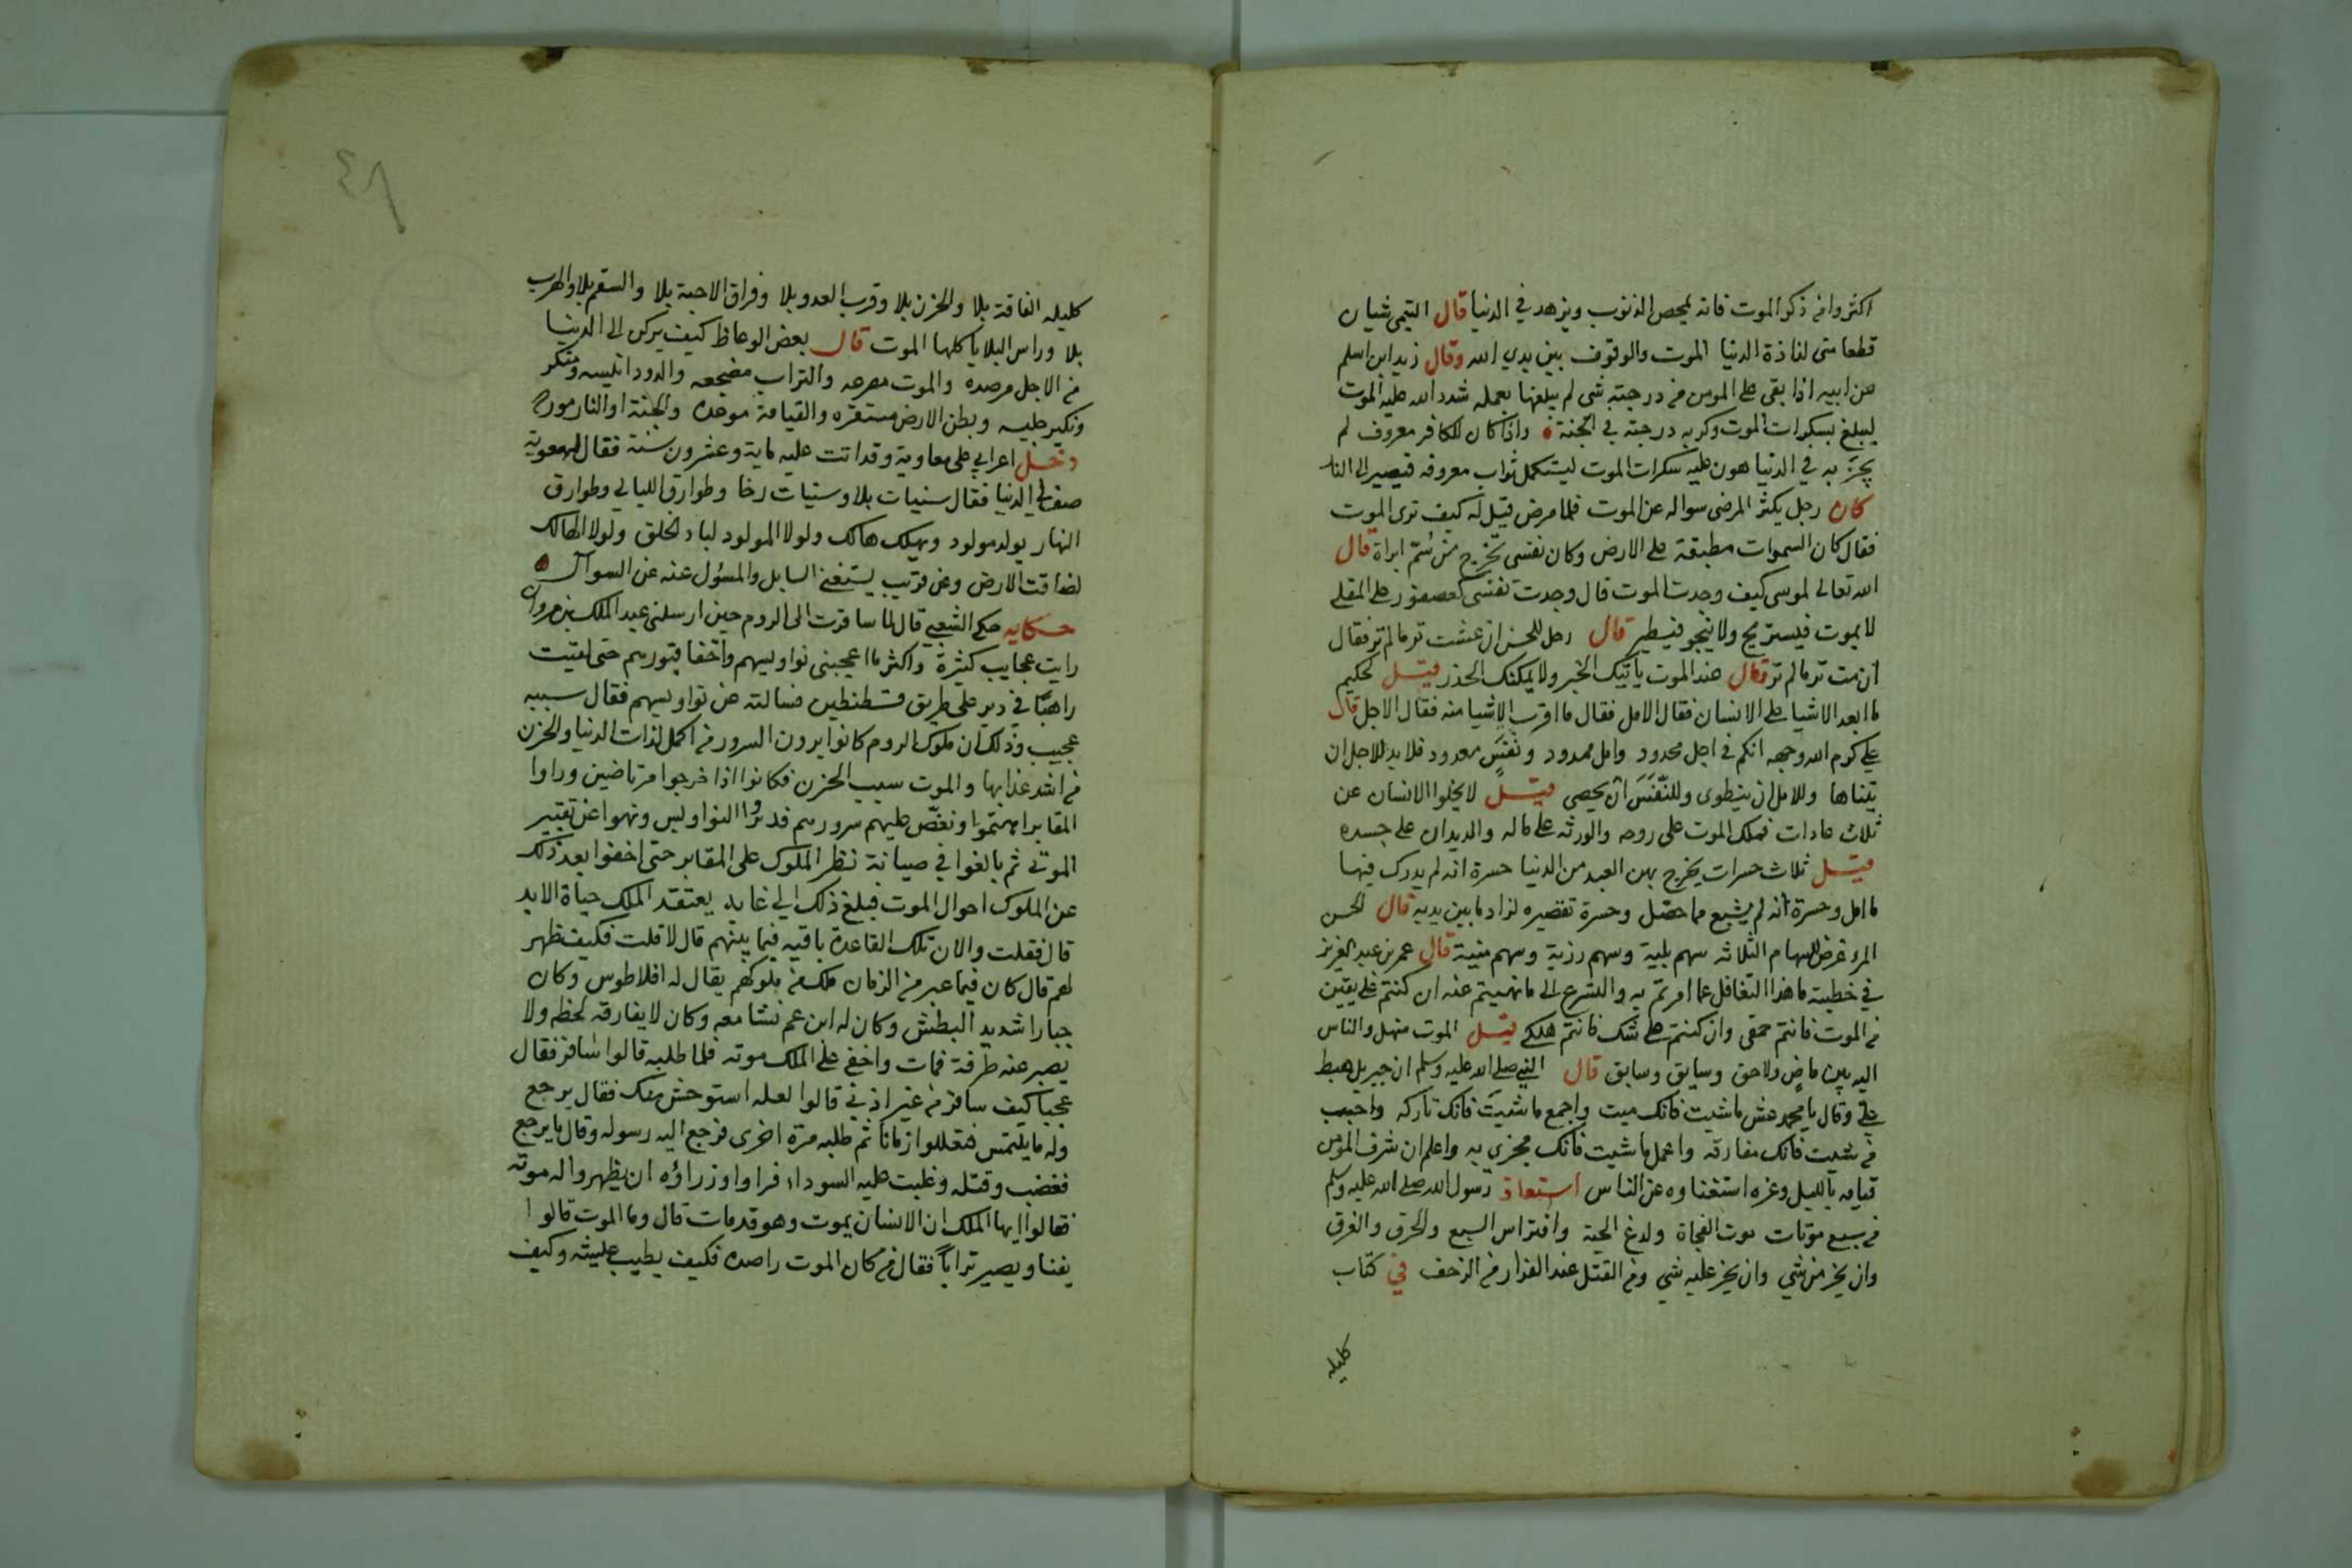 اكثروا من ذكر الموت فانه يمحص الذنوب ويزهد في الدنيا قال التيمى شيان
قطعا منى لذاذة الدنيا الموت والوقوف بين يدي الله وقال زيد ابن اسلم
عن ابيه اذا بقى على المومن من درجته شى لم يبلغها بعمله شدد الله عليه الموت
ليبلغ بسكرات الموت وكربه درجته في الجنة واذا كان للكافر معروف لم
يجز به في الدنيا هون عليه سكرات الموت ليستكمل ثواب معروفه فيصير الى النار
كان رجل يكثر المرضى سواله عن الموت فلما مرض قيل له كيف ترى الموت
فقال كان السموات مطبقة على الارض وكان نفسى تخرج من سُمّ ابراة قال
الله تعالى لموسى كيف وجدت الموت قال وجدت نفسى كعصفور على المقلى
لا يموت فيستريح ولا ينجو فيطير قال رجل للحسن ان عشت تر ما لم تر فقال
ان مت تر ما لم تر قال عند الموت ياتيك الخبر ولا يمكنك الحذر قيل لحكيم
ما ابعد الاشيا على الانسان فقال الامل فقال ما اقرب الاشيا منه فقال الاجل قال
على كرم الله وجهه انكم في اجل محدود وامل ممدود ونَفَسٍ معدود فلا بد للاجل ان
يتناها وللامل ان ينطوى وللنَّفَس ان يحصى قيل لا يخلوا الانسان عن
ثلاث عادات فملك الموت على روحه والورثه على ماله والديدان على جسده
قيل ثلاث حسرات يخرج بهن العبد من الدنيا حسرة انه لم يدرك فيها
ما امل وحسرة انه لم يشبع مما حصّل وحسرة تقصيره لزاد ما بين يديه قال الحسن
المرء غرض للسهام الثلاثه سهم بلية وسهم رزية وسهم منية قال عمر بن عبد العزيز
في خطبته ما هذا التغافل عما امرتم به والتسرع الى ما نهيتم عنه ان كنتم على يقين
من الموت فانتم حمقى وان كنتم على شك فانتم هلكى قيل الموت منهل والناس
اليه بين ماضٍ ولاحق وسايق وسابق قال النبى صلى الله عليه وسلم ان جبريل هبط
علىّ وقال يا محمد عش ما شيت فانك ميت واجمع ما شيت فانك تاركه واحبب
من شيت فانك مفارقه واعمل ما شيت فانك مجزى به واعلم ان شرف المومن
قيامه بالليل وعزه استغناوه عن الناس استعاذ رسول الله صلى الله عليه وسلم
من سبع موتات موت الفجاة ولدغ الحية وافتراس السبع والحرق والغرق
وان يخر من شي وان يخر عليه شي ومن القتل عند الفرار من الزحف في كتاب
كليله
٤٨
كليله الفاقة بلا والحزن بلا وقرب العدو بلا وفراق الاحبة بلا والسقم بلا والهرب
بلا وراس البلايا كلها الموت قال بعض الوعاظ كيف يركن الى الدنيا
من الاجل مرصده والموت مصرعه والتراب مضجعه والدود انيسه ومنكر
ونكير جليسه وبطن الارض مستقره والقيامة موعده والجنة او النار مورده
دخل اعرابي على معاوية وقد اتت عليه ماية وعشرون سنة فقال له معوية
صف لي الدنيا فقال سنيات بلا وسنيات رخا وطوارق الليالي وطوارق
النهار يولد مولود ويهلك هالك ولولا المولود لباد الخلق ولولا الهالك
لضاقت الارض وعن قريب يستغنى السايل والمسؤل عنه عن السوال
حكايه حكى الشعبي قال لما سافرت الى الروم حين ارسلنى عبد الملك بن مروان
رايت عجايب كثيرة واكثر ما اعجبنى نواويسهم واخفا قبورهم حتى لقيت
راهبًا في دير على طريق قسطنطين فسالته عن نواويسهم فقال سببه
عجيب وذلك ان ملوك الروم كانوا يرون السرور من اكمل لذات الدنيا والحزن
من اشد عذابها والموت سبب الحزن فكانوا اذا خرجوا مرتاضين وراوا
المقابر اهتمّوا ونغّص عليهم سرورهم فدبروا النواويس ونهوا عن تقبير
الموتى ثم بالغوا في صيانة نظر الملوك على المقابر حتى اخفوا بعد ذلك
عن الملوك احوال الموت فبلغ ذلك الي غايه يعتقد الملك حياة الابد
قال فقلت والان تلك القاعدة باقيه فيما بينهم قال لا قلت فكيف ظهر
لهم قال كان فيما عبر من الزمان ملك من ملوكهم يقال له افلاطوس وكان
جبارا شديد البطش وكان له ابن عم نشا معه وكان لا يفارقه لحظه ولا
يصبر عنه طرفة فمات واخفى على الملك موته فلما طلبه قالوا سافر فقال
عجبا كيف سافر من غير اذنى قالوا لعله استوحش منك فقال يرجع
وله ما يلتمس فتعللوا زمانا ثم طلبه مرة اخرى فرجع اليه رسوله وقال ما يرجع
فغضب وقتله وغلبت عليه السوداء فراوا وزراؤه ان يظهروا له موته
فقالوا ايها الملك ان الانسان يموت وهو قد مات قال وما الموت قالوا
يفنا ويصير تراباً فقال من كان الموت راصده فكيف يطيب عيشه وكيف